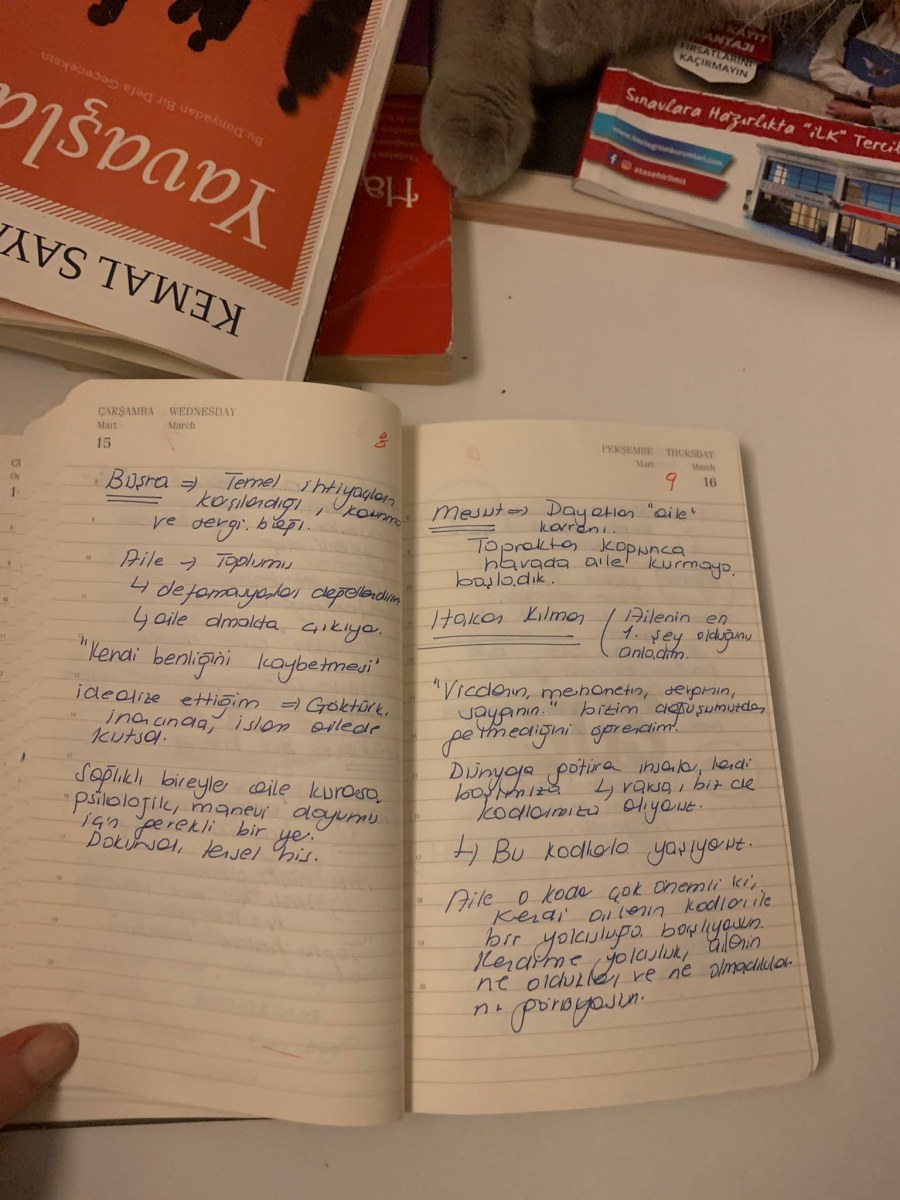 KAYIT
AVANTAJI
FIRSATLARINI
KAÇIRMAYIN
Sınavlara Hazırlıkta "İLK" Tercih
atasehirlimit
Bu Dünyadan Bir Defa Geçeceksin
Yavaşla
KEMAL SAYA
Ha
ÇARŞAMBA WEDNESDAY
Mart March
15
8
Büşra => Temel ihtiyaçların
karşılandığı, korunma
ve sevgi bağı.
Aile → Toplumu
↳ deformasyonları değerlendirm
↳ aile olmakta çıkıyor.
"Kendi benliğini kaybetmesi"
idealize ettiğim => Göktürk
inancında, islam ailede
kutsal.
Sağlıklı bireyler aile kurarsa,
psikolojik, manevi doyumu
için gerekli bir yer.
Dokunsal, tensel his.
PERŞEMBE THURSDAY
Mart March
9 16
Mesut => Dayatılan "aile"
kavramı.
Topraktan kopunca
havada aile kurmaya
başladık.
Hakan Kılman ( Ailenin en
1. şey olduğunu
anladım.
"Vicdanın, merhametin, sevginin,
saygının." bizim doğuşumuzdan
gelmediğini öğrendim.
Dünyaya getiren insanla, kendi
başımıza ↳ varsa, biz de
kodlarımıza alıyoruz.
↳ Bu kodlarla yaşıyoruz.
Aile o kadar çok önemli ki,
kendi ailenin kodları ile
bir yolculuğa başlıyorsun.
Kendime yolculuk, ailenin
ne oldukları ve ne olmadıkları
nı görüyorsun.